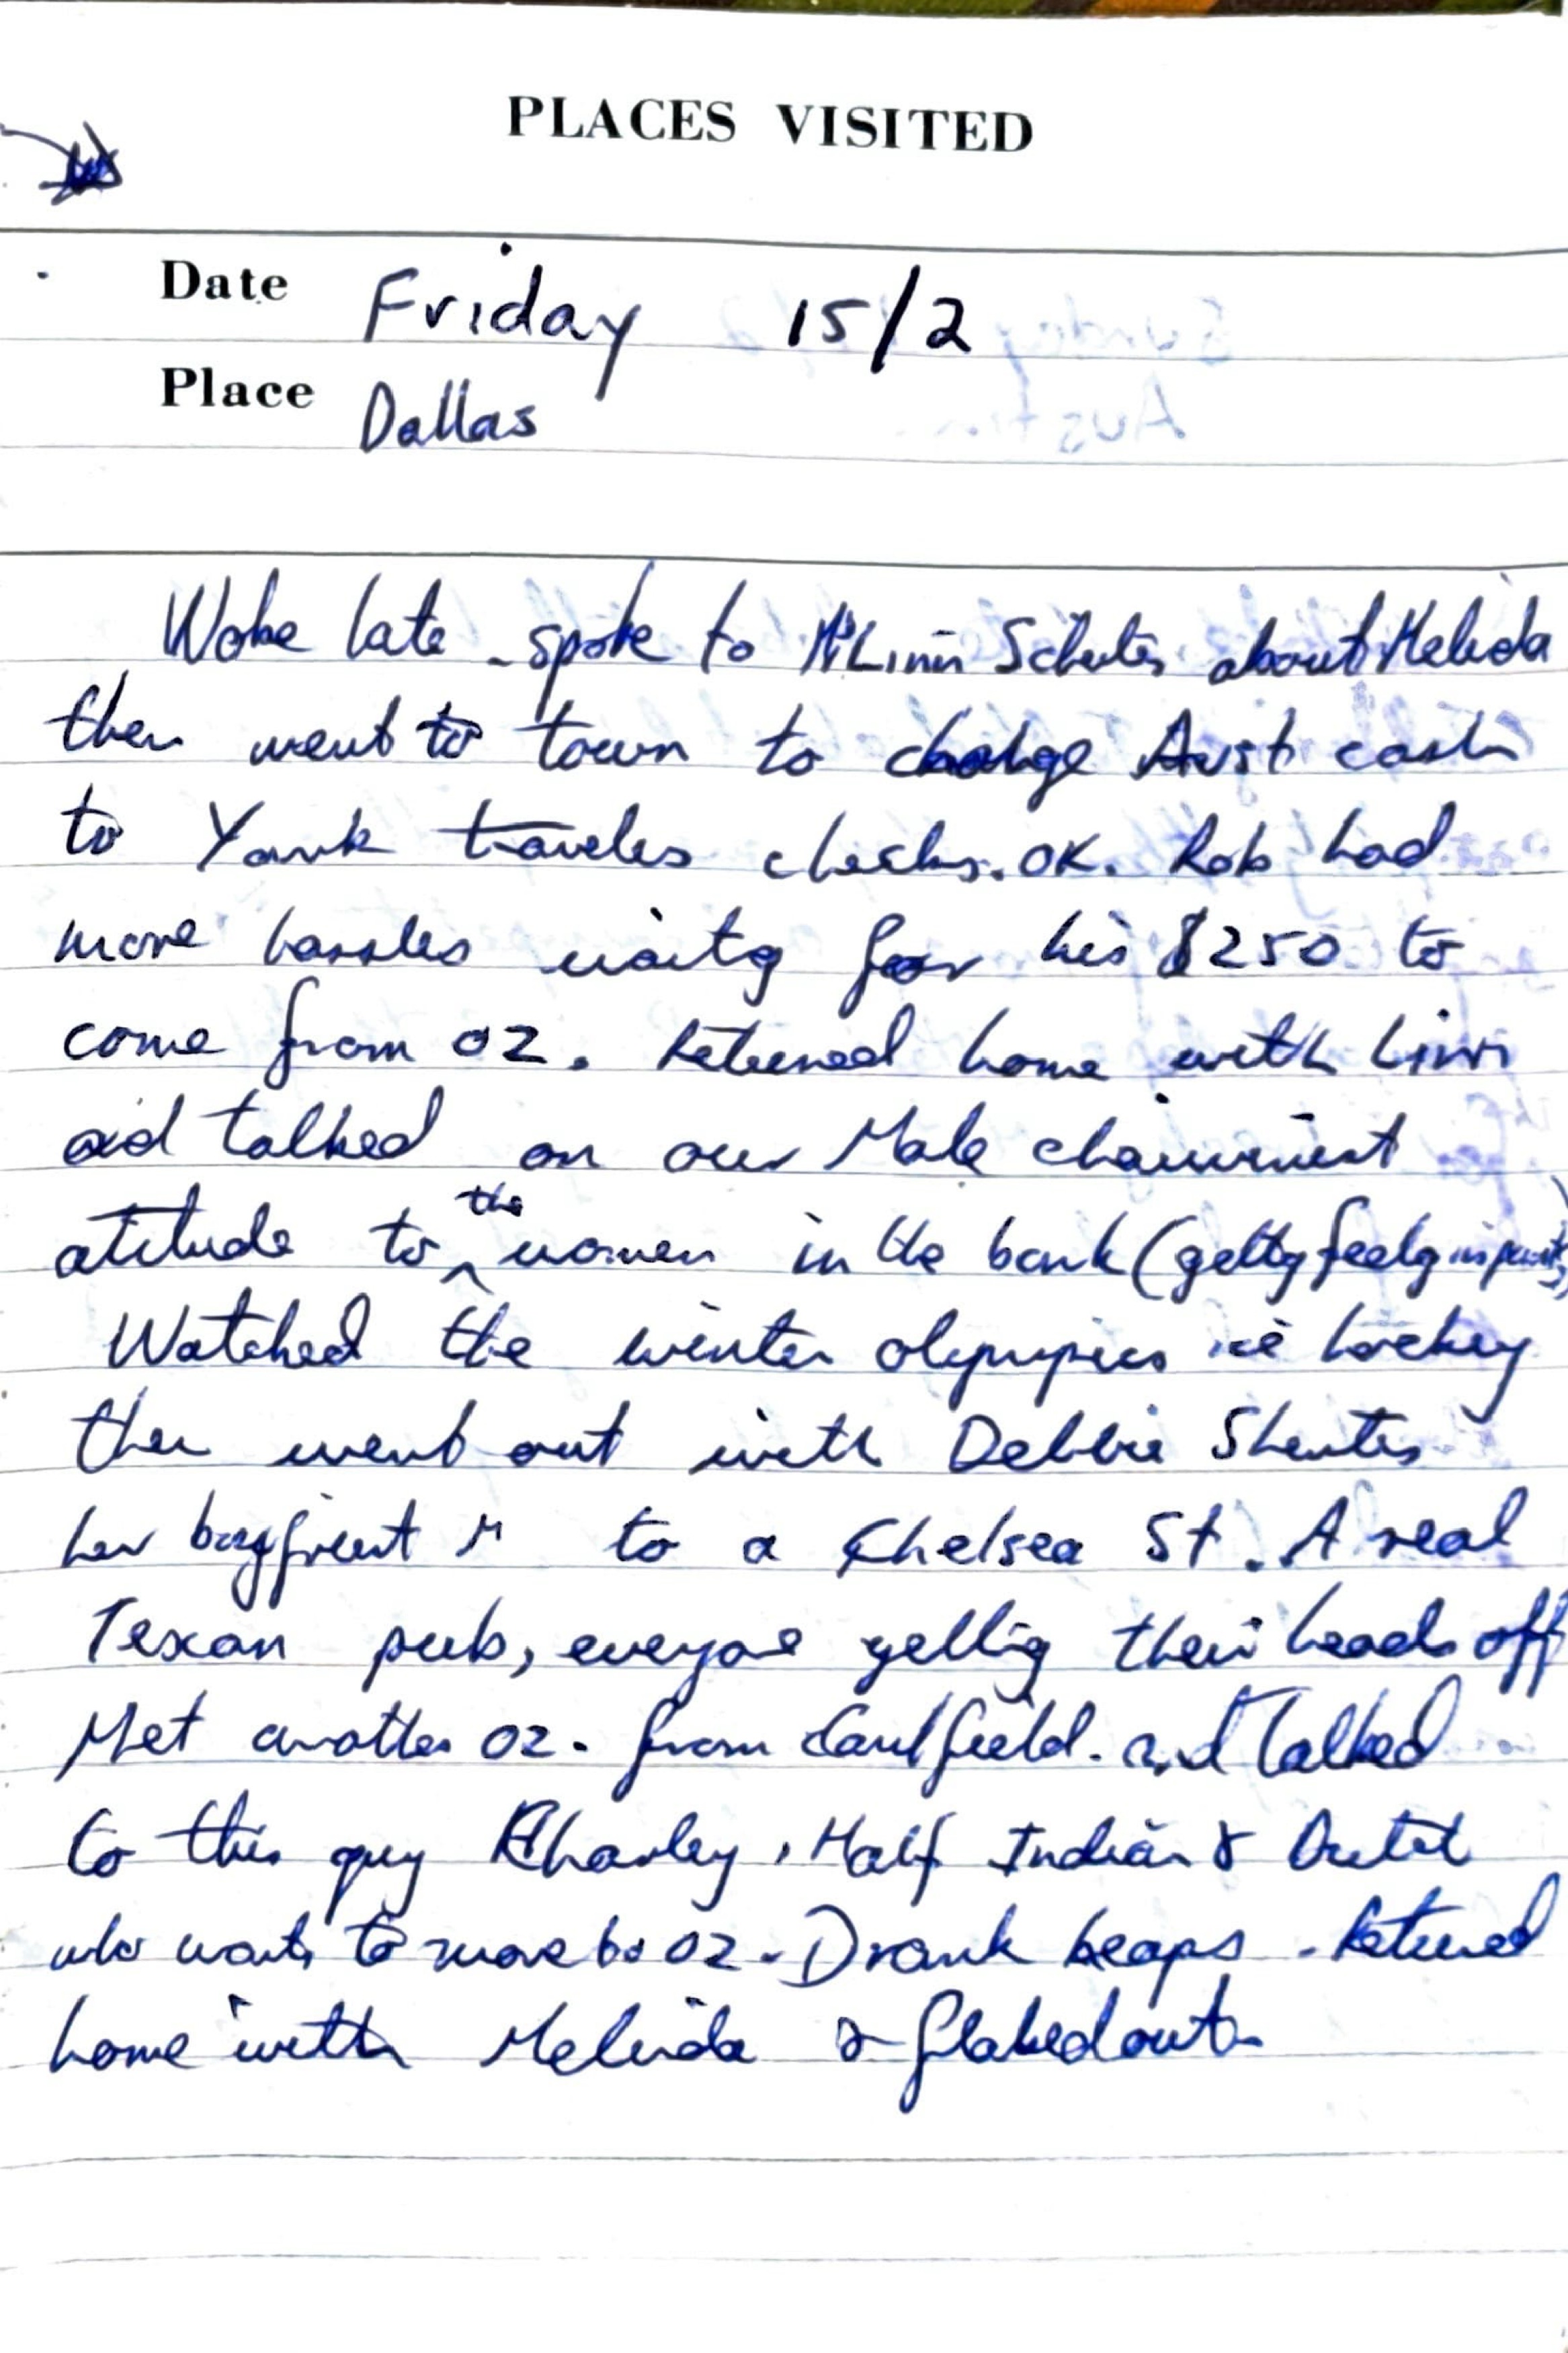 PLACES VISITED
Date Friday 15/2
Place Dallas
Woke late - spoke to Linn about Melinda
then went to town to change Aust cash
to Yank traveles checks. OK. Rob had
more hassles waitg for his $250 to
come from OZ. Returned home with Linn
and talked on our Male chauvinist
atitude to the women in the bank (gettg feelg
Watched the winter olympics ice hockey
then went out with Debbie
her boyfrient to a Chelsea St. A real
Texan pub, everyone yellig their heads off
Met another OZ. from Caulfield. and talked
to this guy Charley, Half Indian &
who wants to move to OZ - Drank heaps - Returned
home with Melinda & flaked out